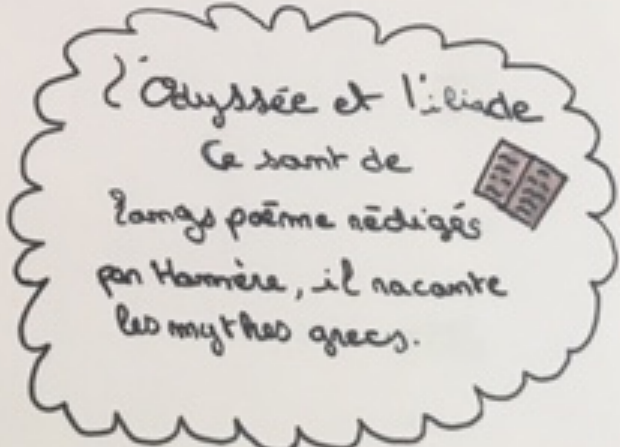 L'Odyssée et l'iliade
Ce sont de
longs poème rédigés
par Homère, il raconte
les mythes grecs.